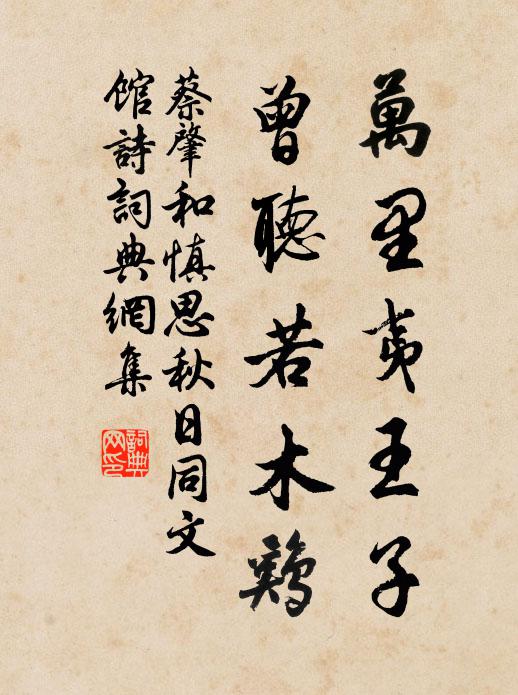 萬里夷王子
曾聽若木鷄
蔡肇和慎思秋日同文
館詩詞典網集
詞典
网印